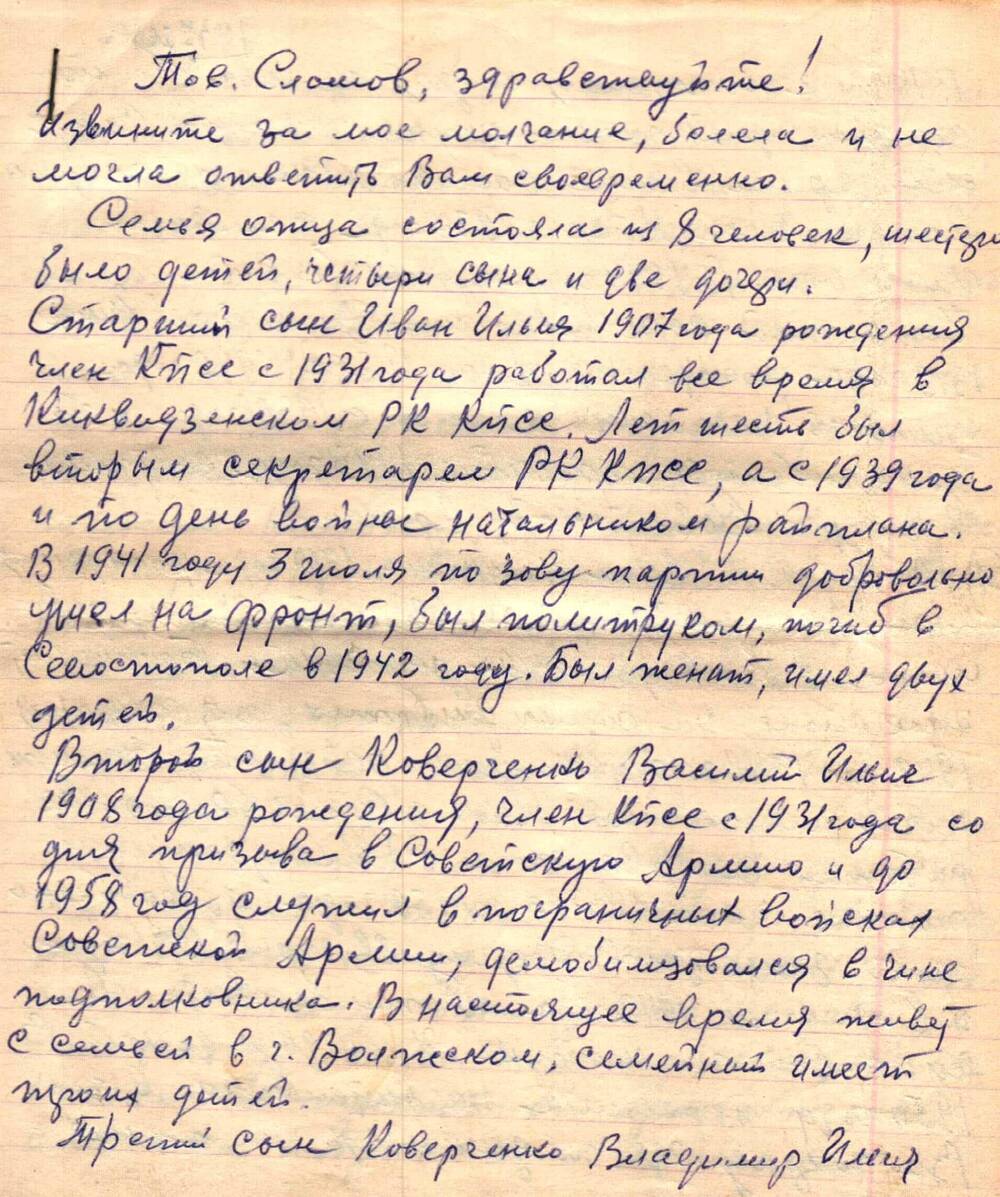 Тов. Сломов, здравствуйте!
Извините за мое молчание, болела и не
могла ответить Вам своевременно.
Семья отца состояла из 8 человек, шестеро
было детей, четыри сына и две дочери.
Старший сын Иван Ильич 1907 года рождения
член КПСС с 1931 года работал все время в
Киквидзенском РК КПСС. Лет шесть был
вторым секретарем РК КПСС, а с 1939 года
и по день войны начальником райплана.
В 1941 году 3 июля по зову партии добровольно
ушел на фронт, был политруком, погиб в
Севостополе в 1942 году. Был женат, имел двух
детей.
Второй сын Коверченко Василий Ильич
1908 года рождения, член КПСС с 1931 года со
дня призыва в Советскую Армию и до
1958 год служил в пограничных войсках
Советской Армии, демобилизовался в чине
подполковника. В настоящее время живет
с семьей в г. Волжском, семейный имеет
троих детей.
Третий сын Коверченко Владимир Ильич